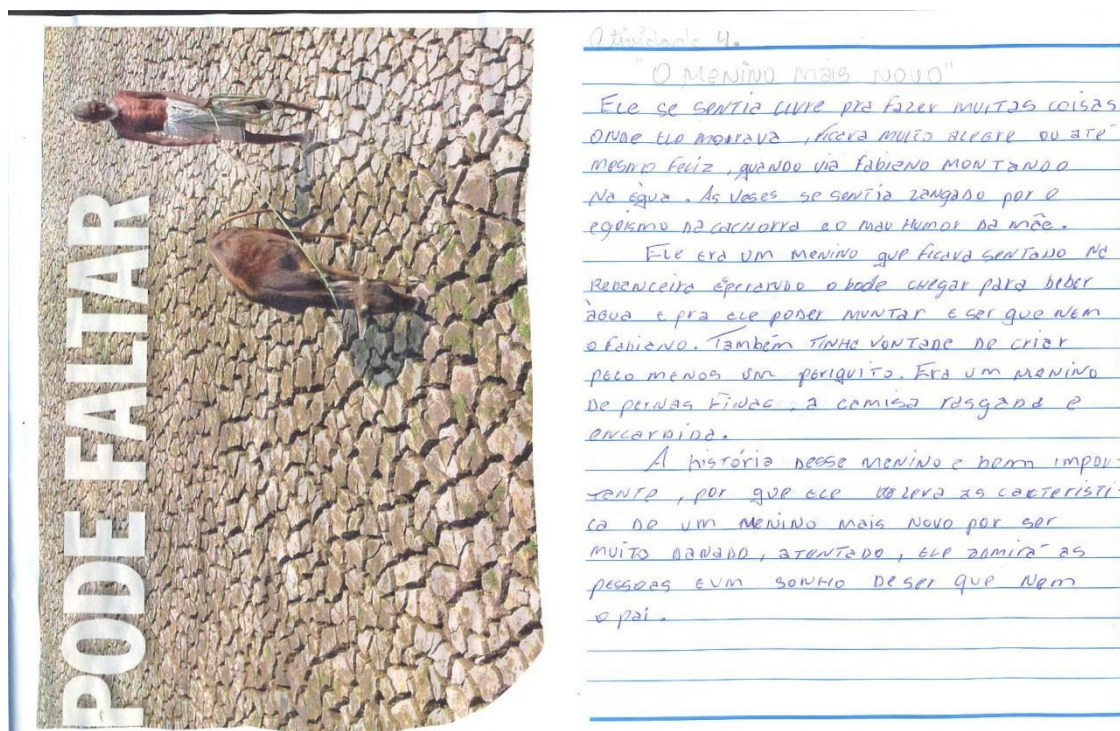 PODE FALTAR
Atividade 4.
"O MENINO MAIS NOVO"
Ele se sentia livre pra fazer muitas coisas
onde ele mourava, ficava muito alegre ou até
mesmo feliz, quando via Fabiano montando
na égua. As veses se sentia zangado por o
egoismo da cachorra e o mau humor da mãe.
Ele era um menino que ficava sentado na
Rebanceira esperando o bode chegar para beber
àgua e pra ele poder muntar e ser que nem
o fabiano. Também tinha vontade de criar
pelo menos um periquito. Era um menino
de pernas finas, a camisa rasgada e
encardida.
A história desse menino e bem impor-
tante, por que ele as carteristi-
ca de um menino mais novo por ser
muito danado, atentado, ele admira as
pessoas e um sonho de ser que nem
o pai.